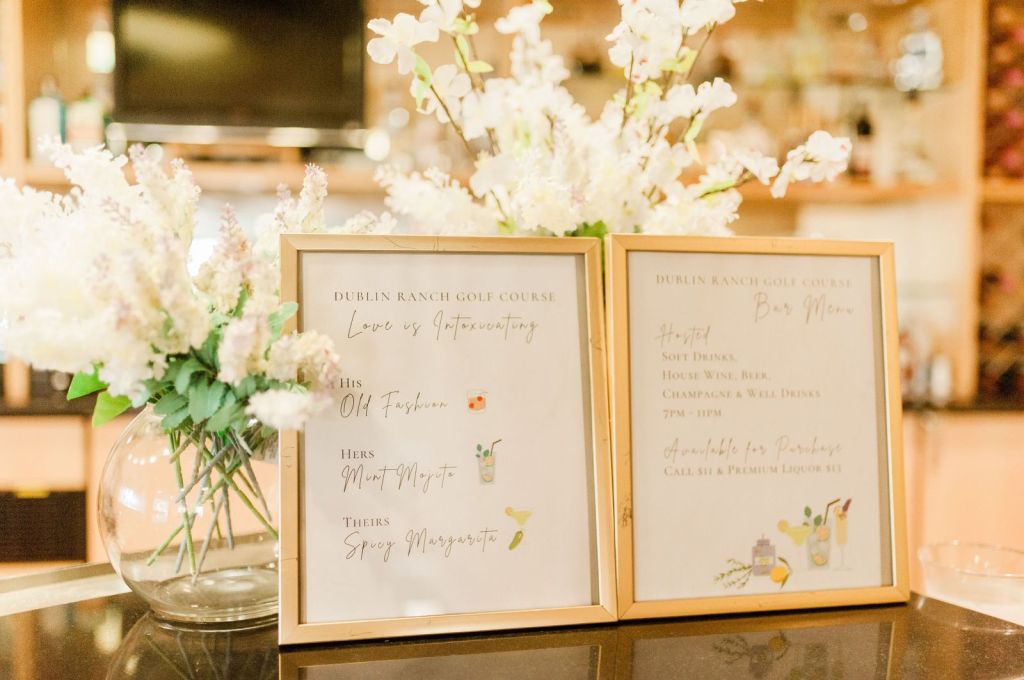 DUBLIN RANCH GOLF COURSE
Love is Intoxicating
HIS
Old Fashion
HERS
Mint Mojito
THEIRS
Spicy Margarita
DUBLIN RANCH GOLF COURSE
Bar Menu
Hosted
SOFT DRINKS,
HOUSE WINE, BEER,
CHAMPAGNE & WELL DRINKS
7PM - 11PM
Available for Purchase
CALL $11 & PREMIUM LIQUOR $13